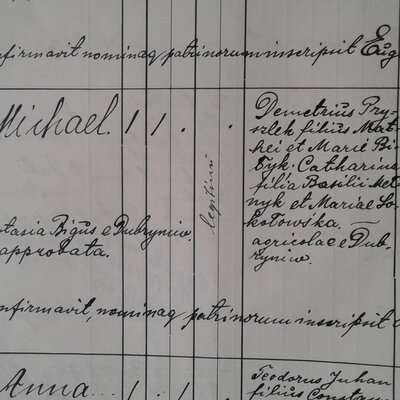 nfirmavit nominaq patrinorum inscripsit Eug
Michael. 1 1 . .
legitimi
Demetrius Pry-
szlek, filius Mat-
hei et Marie Bi-
tyk. Catharina
filia Basilii Met-
nyk et Mariae So-
kołowska.
agricolae e Dub-
ryniow.
otasia Bigus e Dubryniow.
approbata.
nfirmavit, nominaq patrinorum inscripsit
Anna... 1 . 1 .
Teodorus Juhan
filius Constan